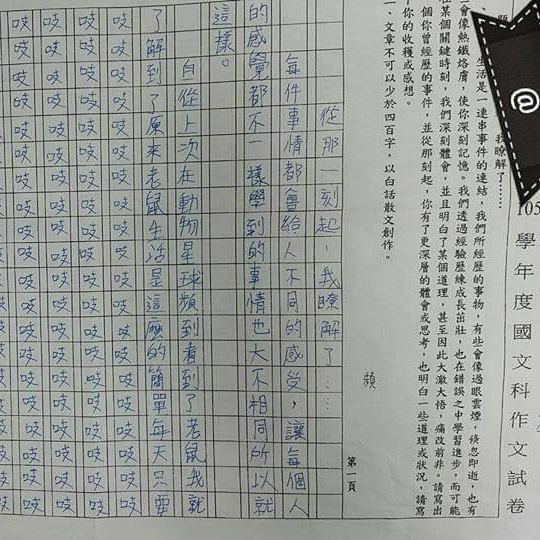 105學年度國文科作文試卷
我瞭解了……
生活是一連串事件的連結，我們所經歷的事物，有些會像過眼雲煙，倏忽即逝，也有
會像熱鐵烙膚，使你深刻記憶。我們透過經驗歷練成長茁壯，也在錯誤之中學習進步，而可能
在某個關鍵時刻，我們深刻體會，並且明白了某個道理，甚至因此大澈大悟，痛改前非。請寫出
個你曾經歷的事件，並從那刻起，你有了更深層的體會或思考，也明白一些道理或狀況，請寫
下你的收穫或感想。
、文章不可以少於四百字，以白話散文創作。
頻
第一頁
從那一刻起，我瞭解了……
每件事情都會給人不同的感受，讓每個人
的感覺都不一樣學到的事情也大不相同所以就
這樣。
自從上次在動物星球頻到看到了老鼠我就
了解到了原來老鼠生活是這麼的簡單每天只要
吱吱吱吱吱吱吱吱吱吱吱吱吱吱吱吱吱吱吱吱
吱吱吱吱吱吱吱吱吱吱吱吱吱吱吱吱吱吱吱吱
吱吱吱吱吱吱吱吱吱吱吱吱吱吱吱吱吱吱吱吱
吱吱吱吱吱吱吱吱吱吱吱吱吱吱吱吱吱吱吱吱